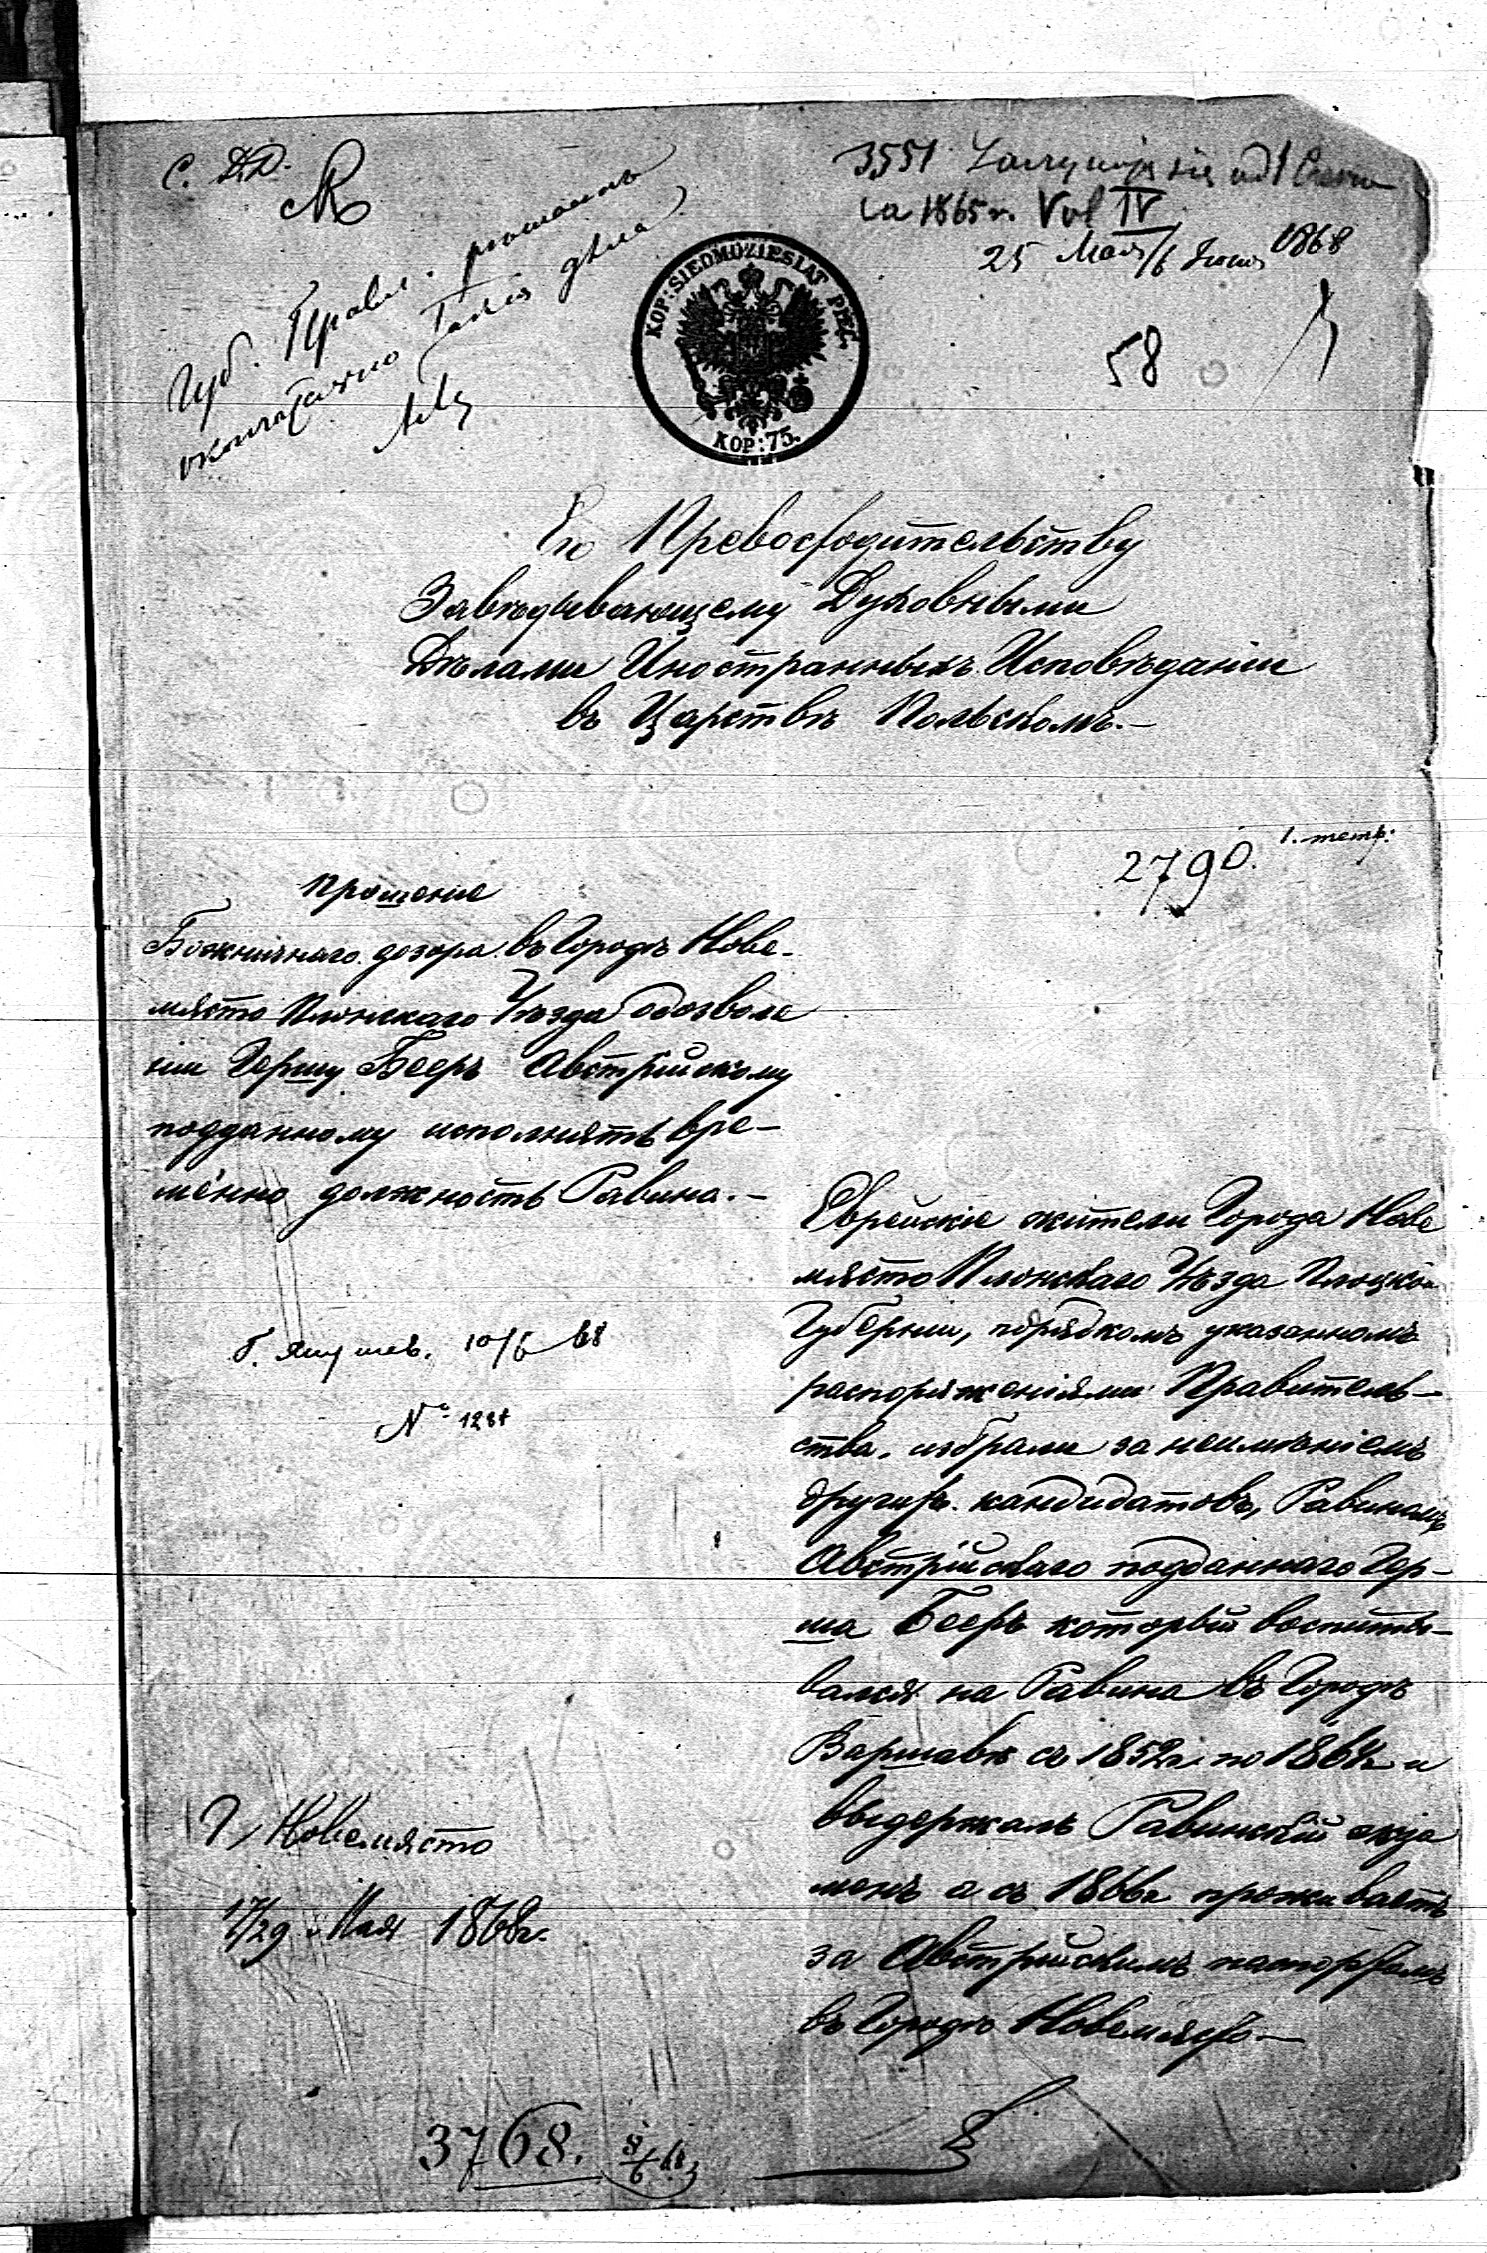 С. Д.Д.
3551
са 1865 r. Vol IV
25 Мая/6 Іюня 1868
Губ. Правл.
дѣла
58
KOP: SIEDMDZIESIAT PIĘĆ.
KOP: 75.
Его Превосходительству
Завѣдывающему Духовными
Дѣлами Иностранныхъ Исповѣданіи
въ Царствѣ Польскомъ.—
2790. 1. тетр.
Прошение
Божничнаго дозора въ Городѣ Нове-
място Плонскаго Уѣзда о дозволе
нии Гершу Бееръ Австрійскому
подданному исполнять вре-
менно должность Равина.—
Еврейскіе жители Города Нове
място Плонскаго Уѣзда Плоцкой
Губерніи, порядкомъ указаннымъ
распоряженіями Правитель-
ства, избрали за неимѣніемъ
другихъ кандидатовъ, Равиномъ
Австрійскаго подданнаго Гер-
ша Бееръ который воспиты-
вался на Равина въ Городѣ
Варшавѣ съ 1852г. по 1864г. и
выдержалъ Равинскій экза
менъ а съ 1866г проживаетъ
за Австрійскимъ паспортомъ
въ Городѣ Новемясто—
10/6 68
№ 1287
Г. Новемясто
17/29 Мая 1868г.
3768. 8/6 68